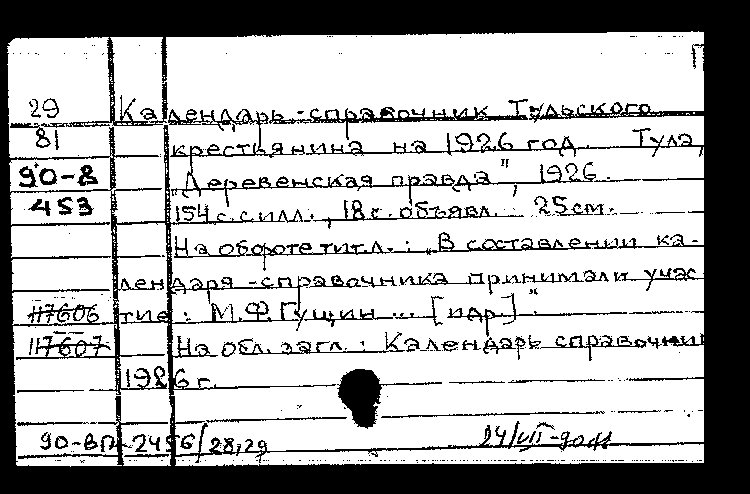 П
29 Календарь-справочник Тульского
81 крестьянина на 1926 год. Тула,
90-8 „Деревенская правда", 1926.
453 154 с. с илл., 18 с. объявл. 25 см.
На обороте тит. л.: „В составлении ка-
лендаря-справочника принимали учас
117606 тие: М.Ф. Гущин ... [и др.]".
117607 На обл. загл.: Календарь справочник
1926 г.
90-ВП-2456/28,29 24/VII-90